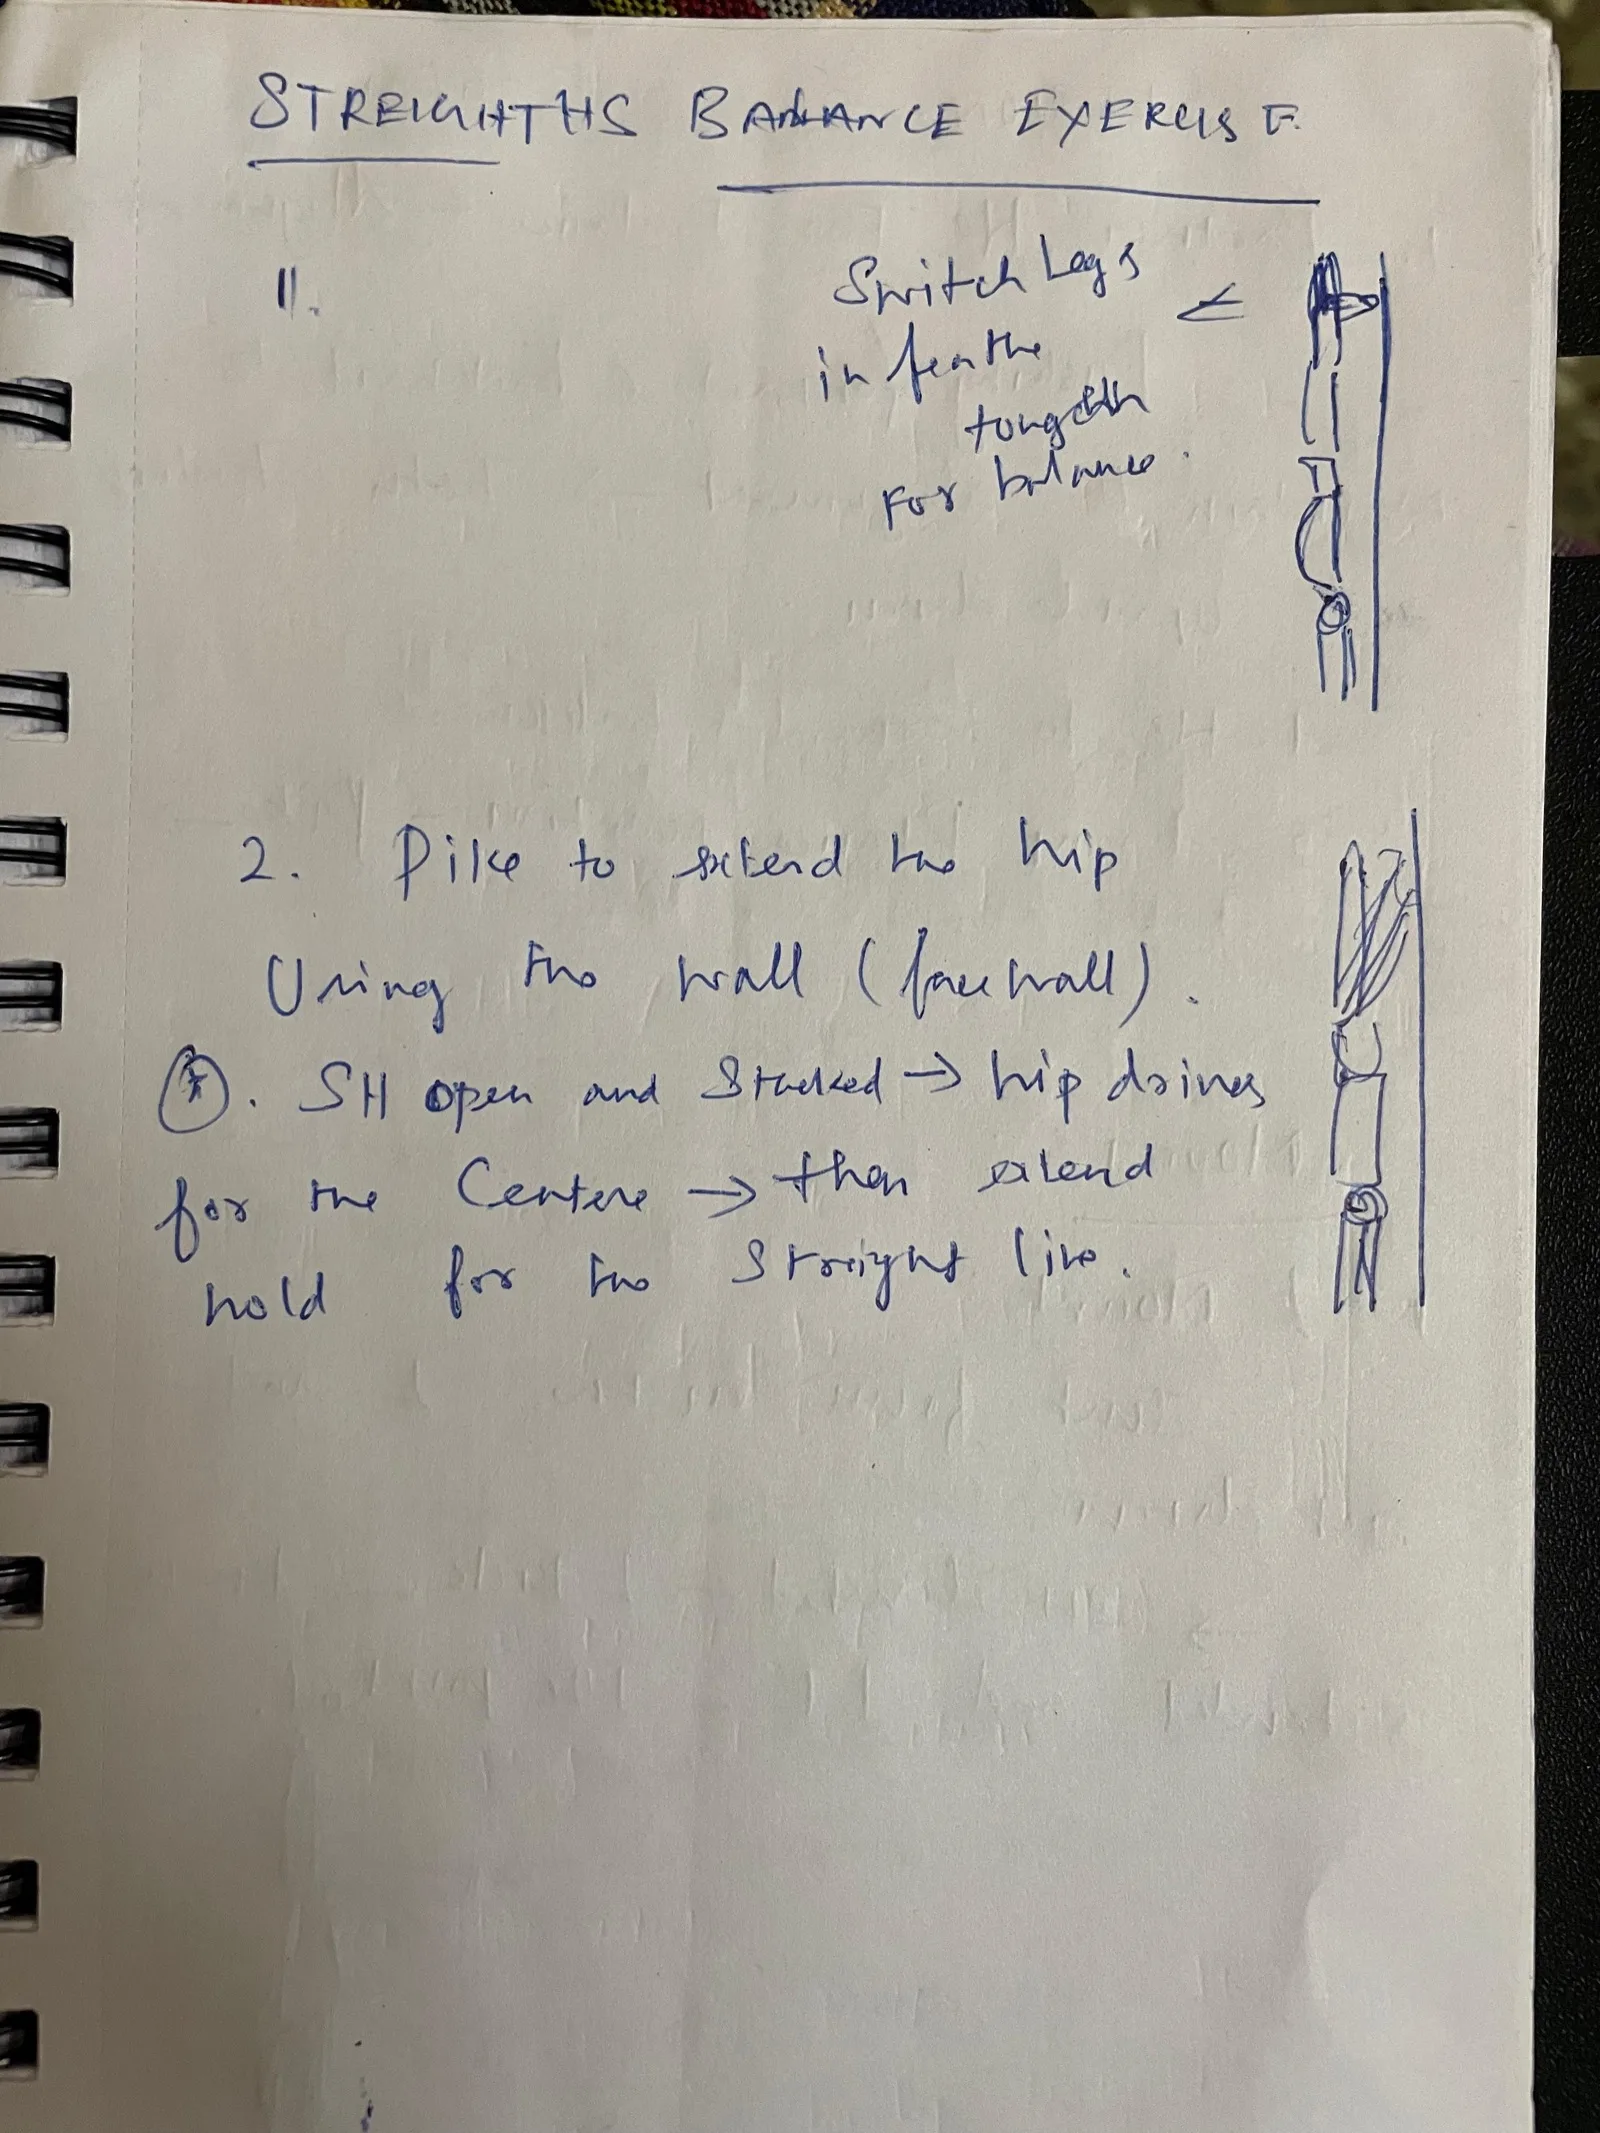 STREIGHTHS BALANCE EXERCISE.
11.
Switch Legs
in fenthe
tongeth
For balance.
2. Pike to extend the hip
Using the wall (face wall).
SH open and Stacked → hip drives
for the Centere → then extend
hold for the Streight line.